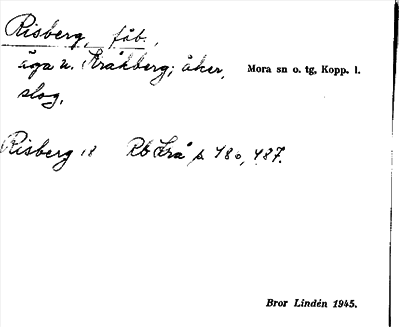 Risberg, fåb.,
äga u. Kråkberg; åker, Mora sn o. tg, Kopp. l.
slog.
Risberg 18 Rb Krå s 480, 487.
Bror Lindén 1945.